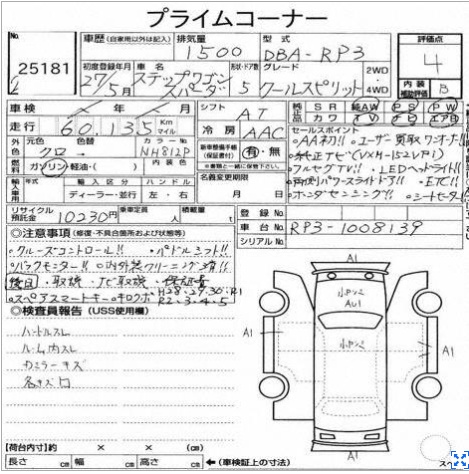 プライムコーナー
No.
25181
車歴 (自家用以外は記入)
排気量
1500
型式
DBA-RP3
評価点
4
初度登録年月
27/5月
車名
ステップワゴン
スパーダ
形状・ドア数
5
グレード
クールスピリット
2WD
4WD
内装
補助評価
B
車検
年 月
シフト
AT
純正
装備品
SR 純AW PS PW
カワ TV ナビ エアB
走行
60,135
Km
マイル
冷房
AAC
セールスポイント
・AA初!! ・ユーザー買取ワンオーナー
外装色
クロ
色替
カラーNo
NH812P
内装色
車両整備手帳
(保証書付)
有・無
・純正ナビ(VXM-152VFi)
・フルセグTV!! ・LEDヘッドライト!!
燃料
ガソリン・軽油・( )
名義変更期限
月 日
・両側パワースライドドア!! ・ETC!!
・ホンダセンシング!! ・シートヒーター
輸入車
年式
輸入区分
ハンドル
ディーラー・並行
左・右
リサイクル
預託金
10230円
乗車定員
人
積載量
登録No.
車台No.
RP3-1008139
シリアルNo.
◎注意事項 (修復・不具合箇所および状態等)
・クルーズコントロール!! ・パドルシフト!!
・バックモニター!! ◎内外装クリーニング済!!
後日 取説・ナビ取説・保証書
・スペアスマートキー・キロクボ H28.29.30.R1
R2.3.4.5
◎検査員報告 (USS使用欄)
ハンドルスレ
ルーム内スレ
各キズ
A1
A1
A1
A1
A1
【荷台内寸】約 × × (cm)
長さ cm 幅 cm 高さ cm ←(車検証上の寸法)